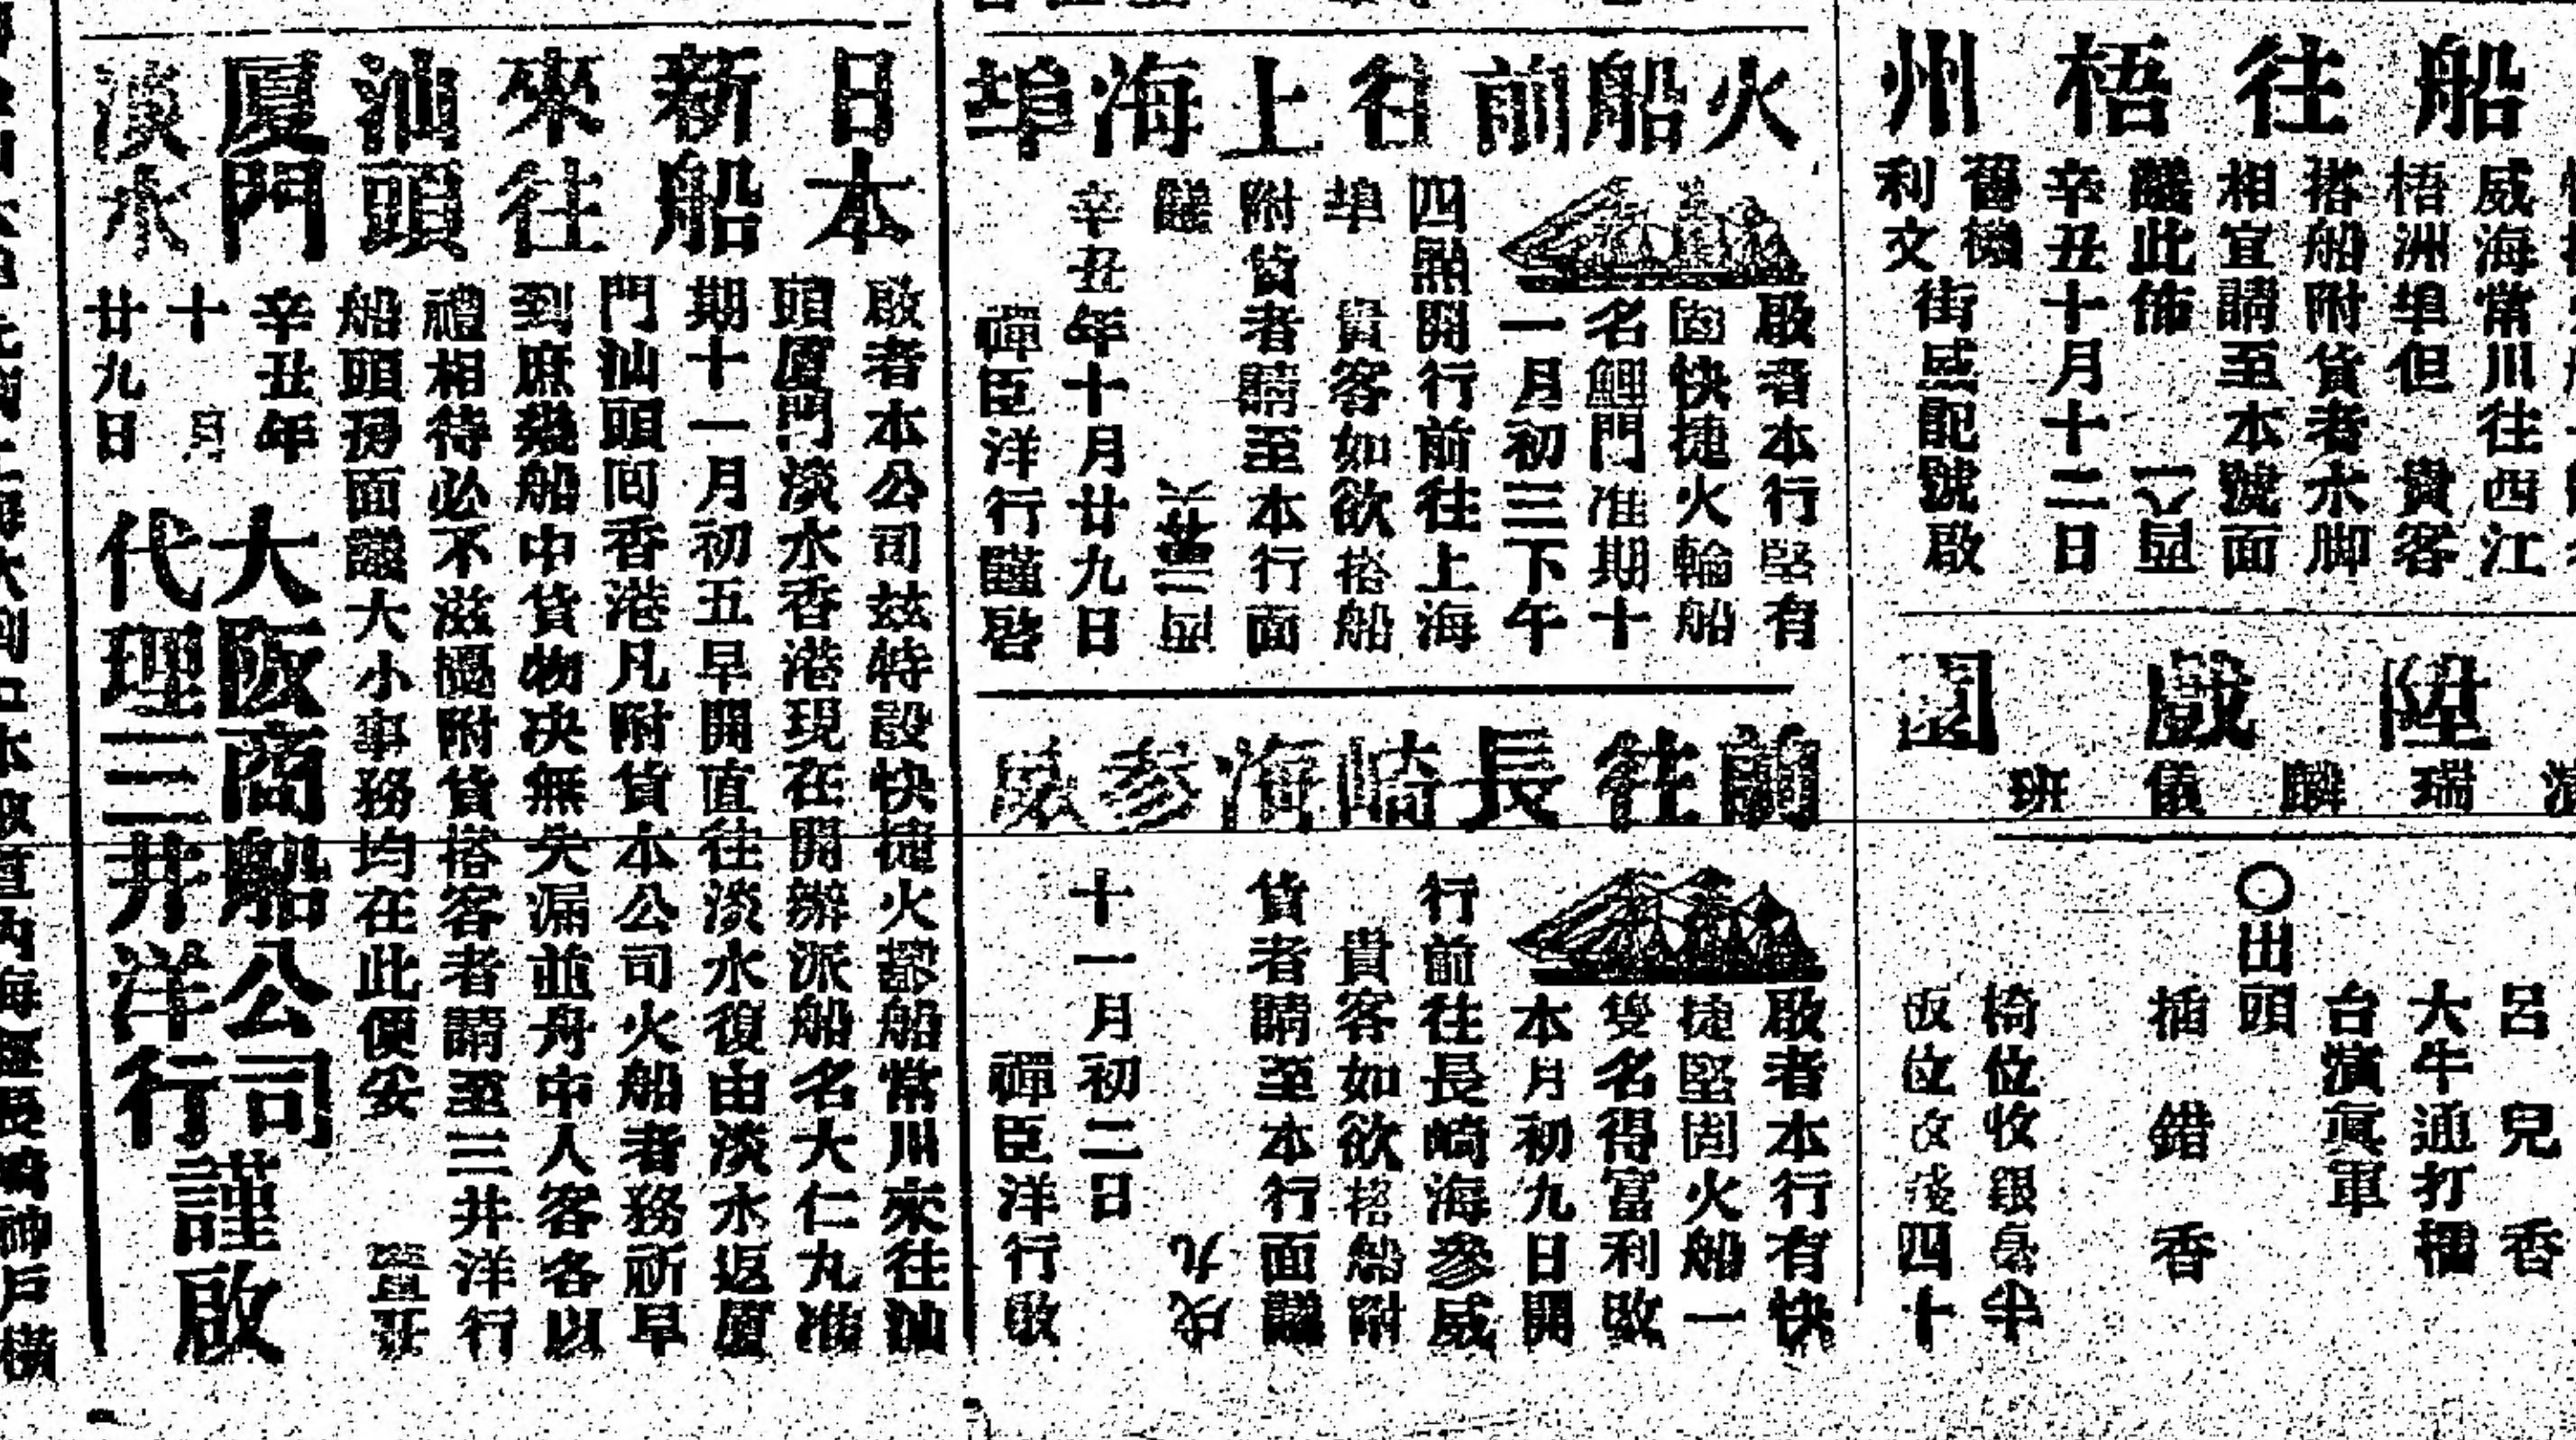 船往梧州
威海常川往西江
梧洲埠但 貴客
搭船附貨者水脚
相宜請至本號面
議此佈
辛丑十月十二日
舊機
利文
街
記號啟
陞戲園
瑞麟儀班
呂兒香
大牛通打
台演
○出頭
插錯香
椅位收銀 半
板位 四十
火船前往上海埠
啟者本行堅有
固快捷火輪船
名鯉門准期十
一月初三下午
四點開行前往上海
埠 貴客如欲搭船
附貨者請至本行面
議
辛丑年十月廿九日
禪臣洋行謹啓
前往長崎海参威
啟者本行有快
捷堅固火船一
隻名得富利啟
本月初九日開
行前往長崎海參威
貴客如欲搭船附
貨者請至本行面議
十一月初二日
禪臣洋行啟
日本
新船
來往
汕頭
厦門
淡水
啟者本公司兹特設快捷火船常川來往汕
頭厦門淡水香港現在開辦派船名大仁丸准
期十一月初五早開直往淡水復由淡水返厦
門汕頭囘香港凡附貨本公司火船者務祈早
到庶幾船中貨物决無失漏並舟中人客各以
禮相待必不滋擾附貨搭客者請至三井洋行
船頭房面議大小事務均在此便妥
辛丑年
十月
廿九日
大阪商船公司
代理三井洋行
謹啟